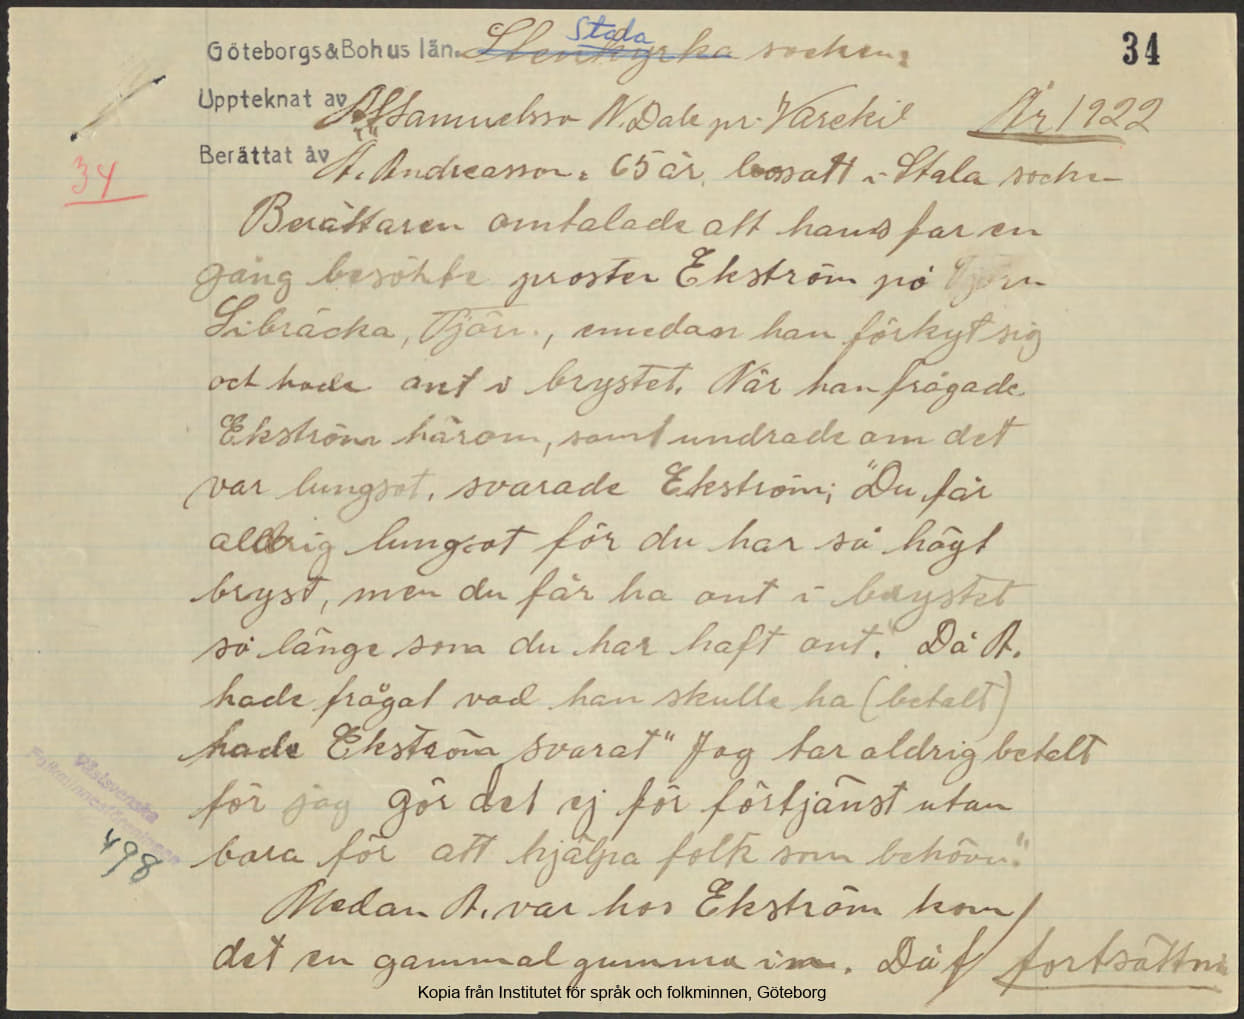 Göteborgs & Bohus län. Stenkyrka Stala socken.
34
Uppteknat av Samuelsson N. Dale pr. Varekil År 1922
Berättat av A. Andreasson. 65 år. bosatt i Stala socken
34
Berättaren omtalade att hans far en
gång besökte prosten Ekström på Tjörn
Sibräcka, Tjörn., emedan han förkyt sig
och hade ont i brystet. När han frågade
Ekström härom, samt undrade om det
var lungsot, svarade Ekström; "Du får
aldrig lungsot för du har så högt
bryst, men du får ha ont i brystet
så länge som du har haft ont." Då A.
hade frågat vad han skulle ha (betalt)
hade Ekström svarat "Jag tar aldrig betalt
för jag gör det ej för förtjänst utan
bara för att hjälpa folk som behöva."
Västsvenska
Folkminnesföreningen
498
Medan A. var hos Ekström kom
det en gammal gumma in. Då / fortsättni
Kopia från Institutet för språk och folkminnen, Göteborg